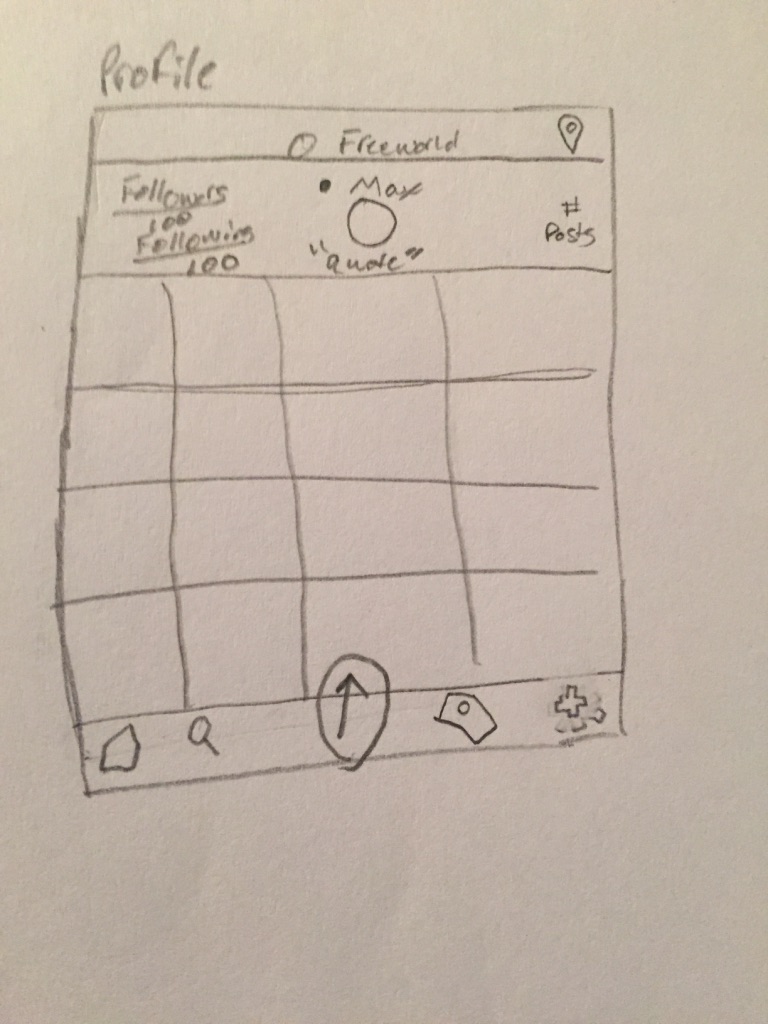 Profile
Freeworld
Followers
100
Following
100
Max
"quote"
#
Posts